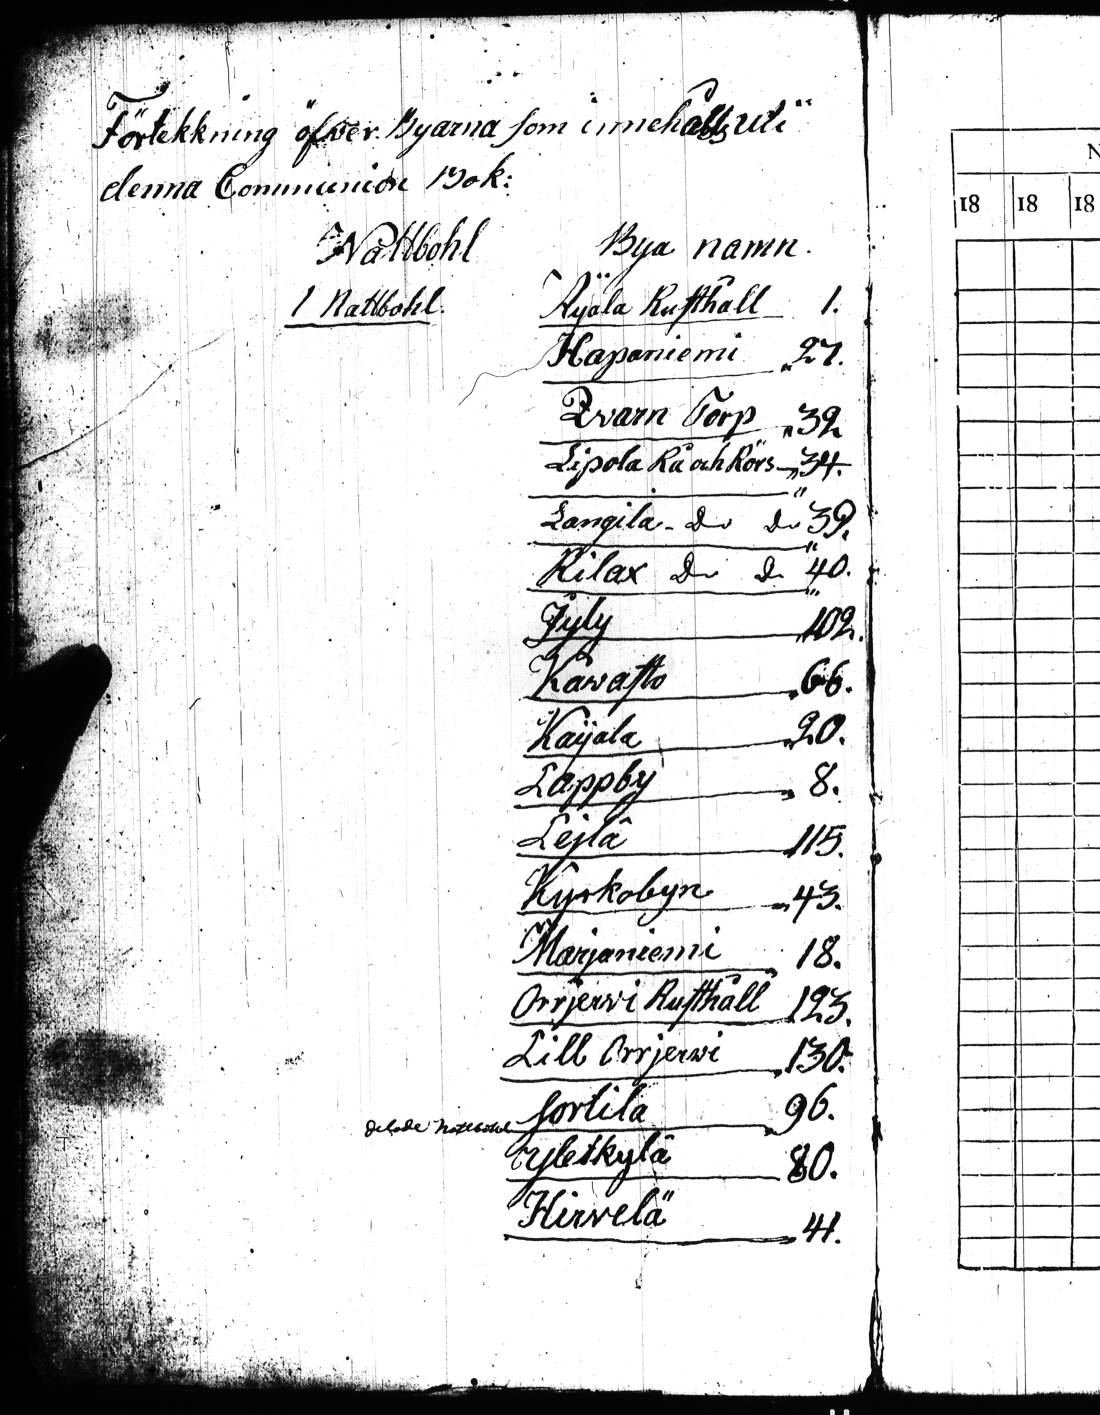 Förtekkning öfwer Byarna som innehålls uti
denna Communion Bok:
Nattbohl Bya namn.
1 Nattbohl. Äyälä Rusthåll 1.
Hapaniemi " 27.
Qvarn Torp " 32
Lipola Rå och Rörs " 34.
Langila - Do Do " 39.
Kilax Do Do " 40.
Jyly " 102.
Kawasto " 66.
Kaÿala " 20.
Lappby " 8.
Lejlä " 115.
Kyrkobyn " 43.
Marjaniemi 18.
Orrjerwi Rusthåll 123.
Lill Orrjerwi " 130.
Sortila " 96.
delade Nattbohl
Yletkylä 80.
Hirvelä " 41.
N
18 18 18